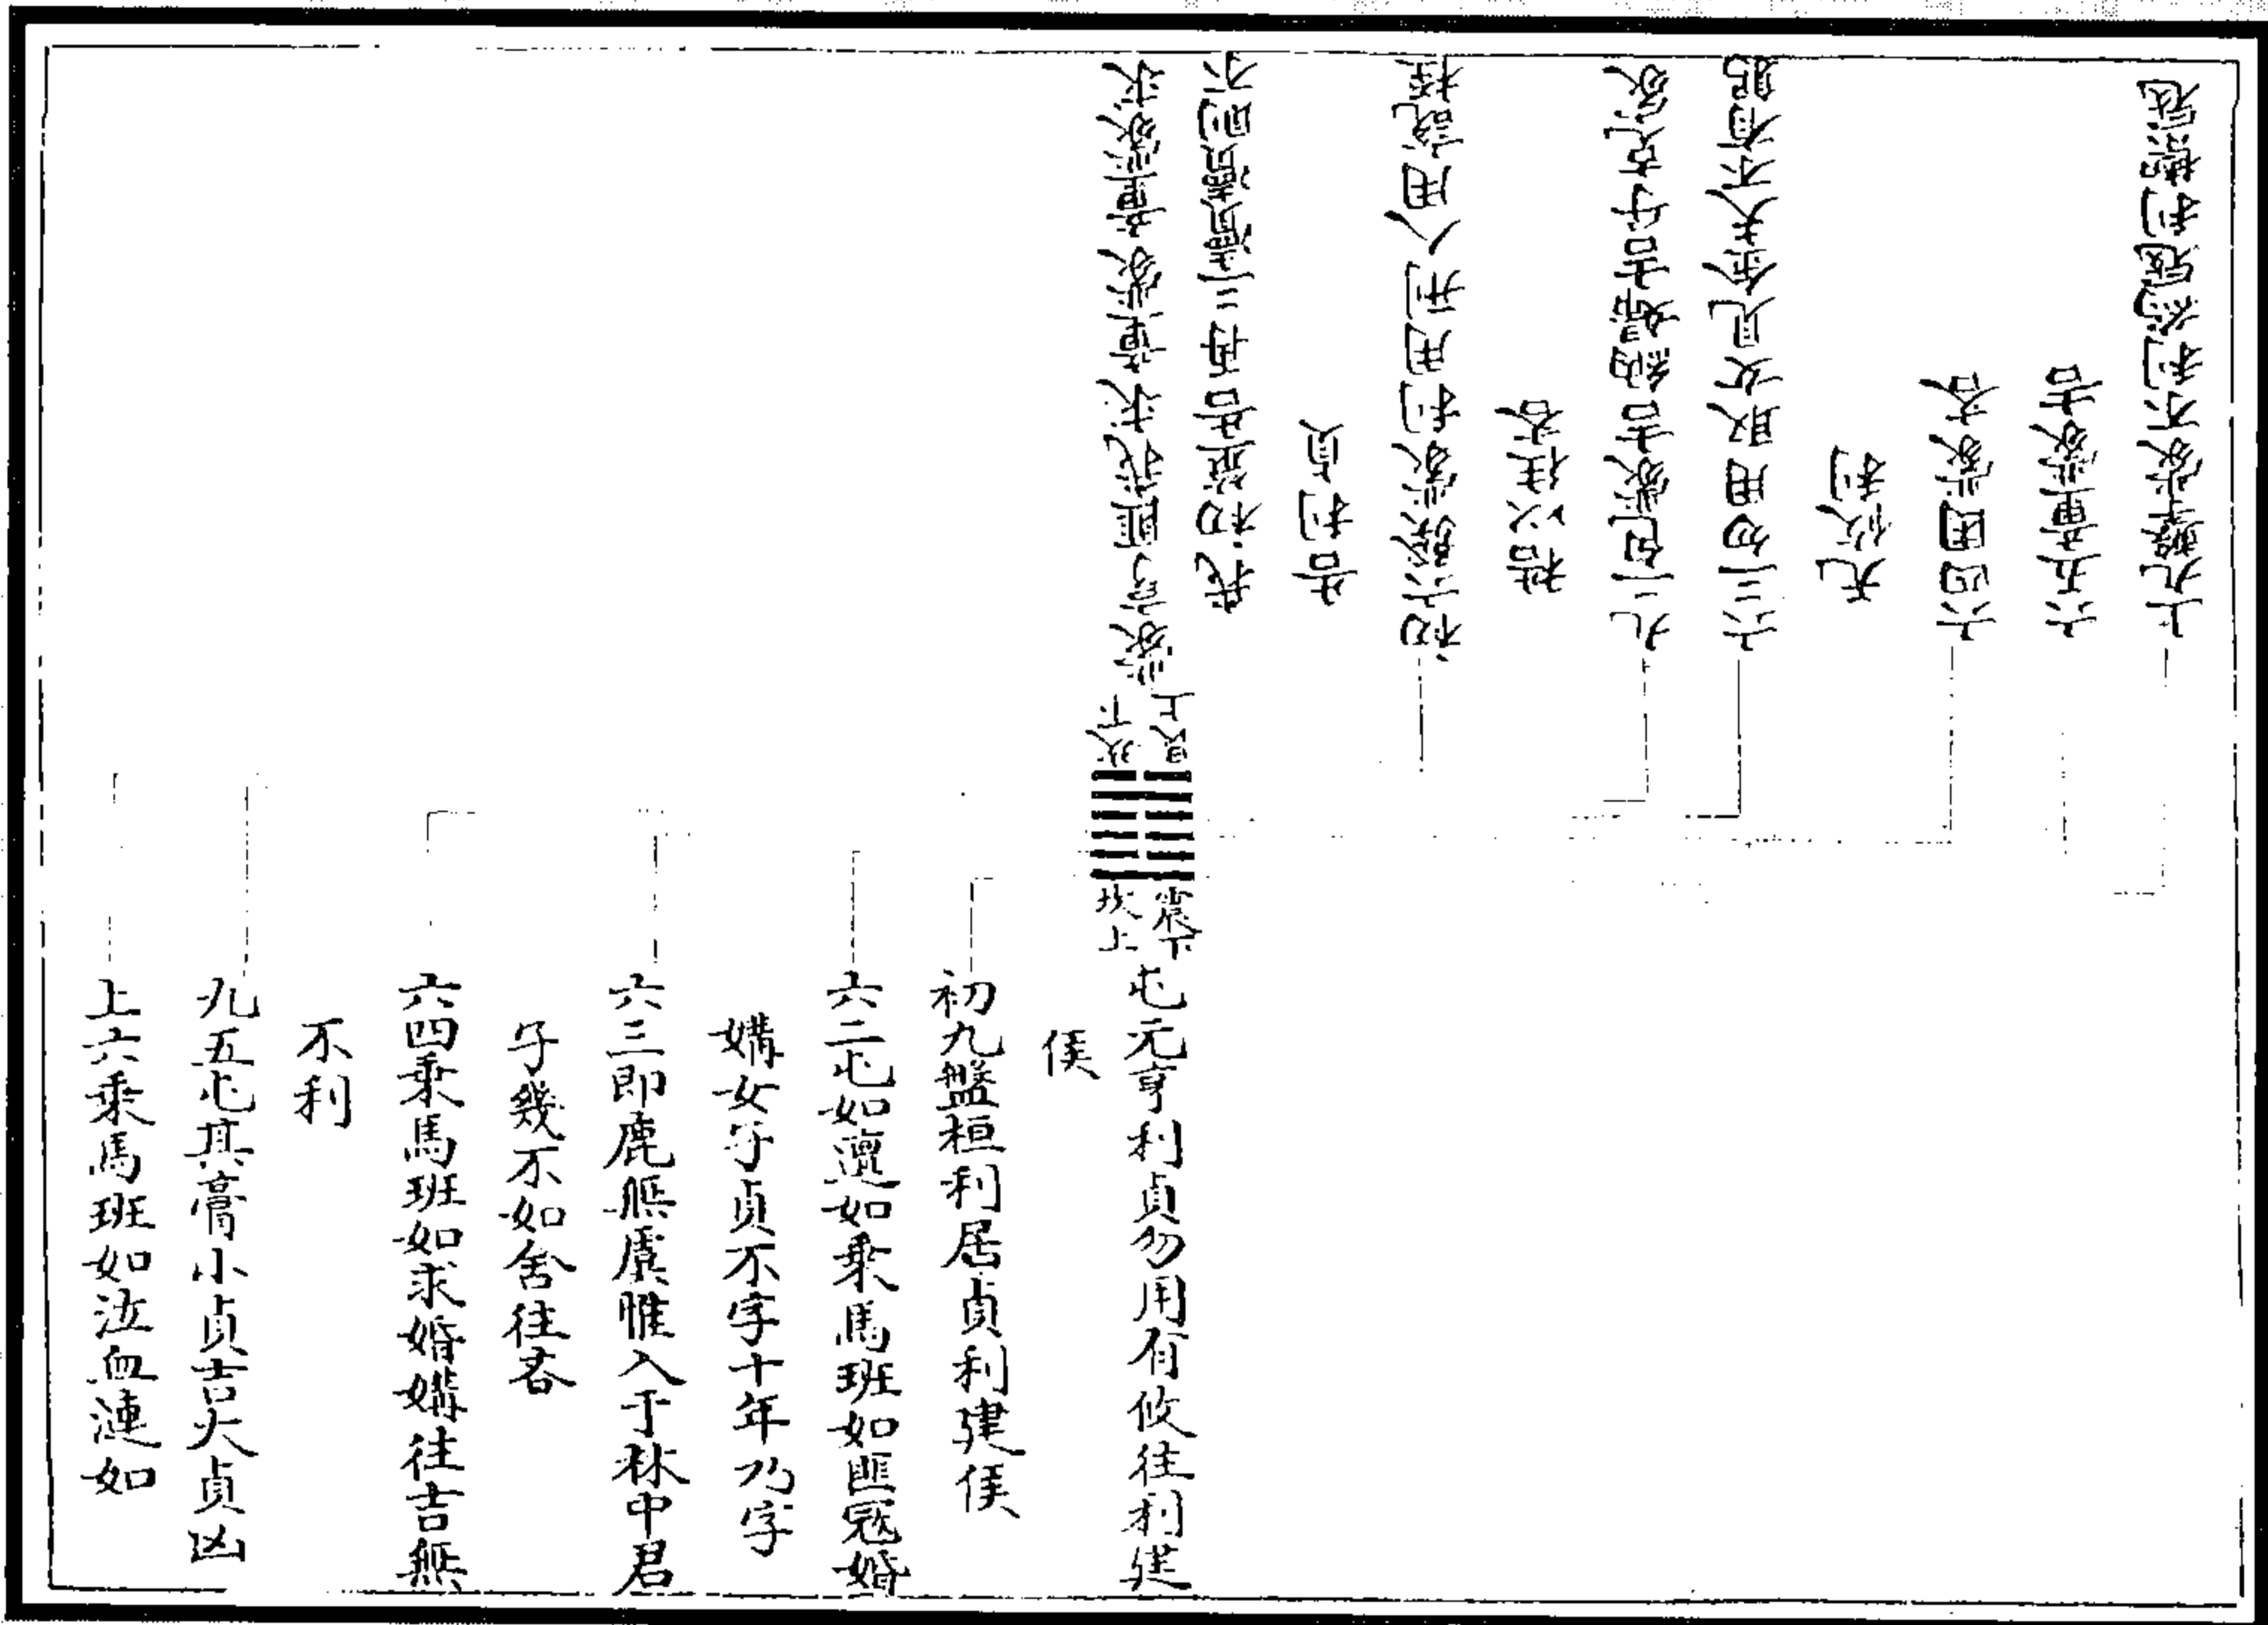 震下
坎上
屯元亨利貞勿用有攸往利建
侯
初九盤桓利居貞利建侯
六二屯如邅如乘馬班如匪冦婚
媾女子貞不字十年乃字
六三即鹿無虞惟入于林中君
子幾不如舍往吝
六四乘馬班如求婚媾往吉無
不利
九五屯其膏小貞吉大貞凶
上六乘馬班如泣血漣如
坎下
艮上
蒙亨匪我求童蒙童蒙求
我初筮告再三瀆瀆則不
告利貞
初六發蒙利用刑人用說桎
梏以往吝
九二包蒙吉納婦吉子克家
六三勿用取女見金夫不有躬
无攸利
六四困蒙吝
六五童蒙吉
上九擊蒙不利為冦利禦冦